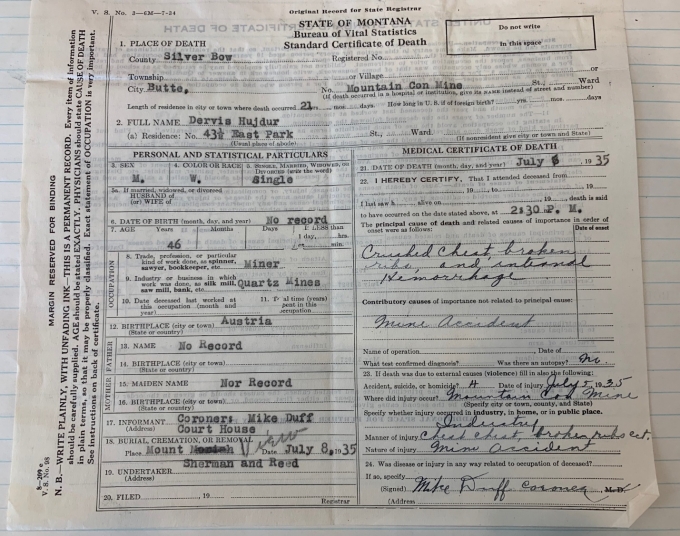 V. S. No. 2—6M—7-24
Original Record for State Registrar
STATE OF MONTANA
Bureau of Vital Statistics
Standard Certificate of Death
Do not write
in this space
1. PLACE OF DEATH
County Silver Bow Registered No.
Township or Village or
City Butte, No. Mountain Con Mine St., Ward
(If death occurred in a hospital or institution, give its NAME instead of street and number)
Length of residence in city or town where death occurred 21 yrs. mos. days. How long in U. S. if of foreign birth? yrs. mos. days
2. FULL NAME Dervis Hujdur
(a) Residence: No. 43½ East Park St., Ward.
(Usual place of abode) (If nonresident give city or town and State)
PERSONAL AND STATISTICAL PARTICULARS
3. SEX 4. COLOR OR RACE 5. SINGLE, MARRIED, WIDOWED, OR DIVORCED (write the word)
M. W. Single
5a. If married, widowed, or divorced
HUSBAND of
(or) WIFE of
6. DATE OF BIRTH (month, day, and year) No record
7. AGE Years Months Days If LESS than
1 day, hrs.
46 or min.
OCCUPATION
8. Trade, profession, or particular
kind of work done, as spinner,
sawyer, bookkeeper, etc. Miner
9. Industry or business in which
work was done, as silk mill,
saw mill, bank, etc. Quartz Mines
10. Date deceased last worked at
this occupation (month and
year)
11. Total time (years)
spent in this
occupation
12. BIRTHPLACE (city or town) Austria
(State or country)
FATHER
13. NAME No Record
14. BIRTHPLACE (city or town)
(State or country)
MOTHER
15. MAIDEN NAME Nor Record
16. BIRTHPLACE (city or town)
(State or country)
17. INFORMANT Coroner: Mike Duff
(Address) Court House
18. BURIAL, CREMATION, OR REMOVAL
Place Mount Moriah View Date July 8, 1935
19. UNDERTAKER Sherman and Reed
(Address)
20. FILED 19
Registrar
MEDICAL CERTIFICATE OF DEATH
21. DATE OF DEATH (month, day, and year) July 1935
22. I HEREBY CERTIFY, That I attended deceased from
, 19 , to , 19
I last saw h alive on , 19 , death is said
to have occurred on the date stated above, at 2:30 P. M.
The principal cause of death and related causes of importance in order of
onset were as follows: Date of onset
Crushed chest broken
ribs, and internal
Hemorrhage
Contributory causes of importance not related to principal cause:
Mine Accident
Name of operation Date of
What test confirmed diagnosis? Was there an autopsy? No
23. If death was due to external causes (violence) fill in also the following:
Accident, suicide, or homicide? Date of injury July 5, 1935
Where did injury occur? Mountain Con Mine
(Specify city or town, county, and State)
Specify whether injury occurred in industry, in home, or in public place.
Industry
Manner of injury chest, broken ribs ect.
Nature of injury Mine Accident
24. Was disease or injury in any way related to occupation of deceased?
If so, specify
(Signed) Mike Duff Coroner M. D.
(Address)
MARGIN RESERVED FOR BINDING
N. B.—WRITE PLAINLY, WITH UNFADING INK—THIS IS A PERMANENT RECORD. Every item of information
should be carefully supplied. AGE should be stated EXACTLY. PHYSICIANS should state CAUSE OF DEATH
in plain terms, so that it may be properly classified. Exact statement of OCCUPATION is very important.
See instructions on back of certificate.
V. S. No. 98